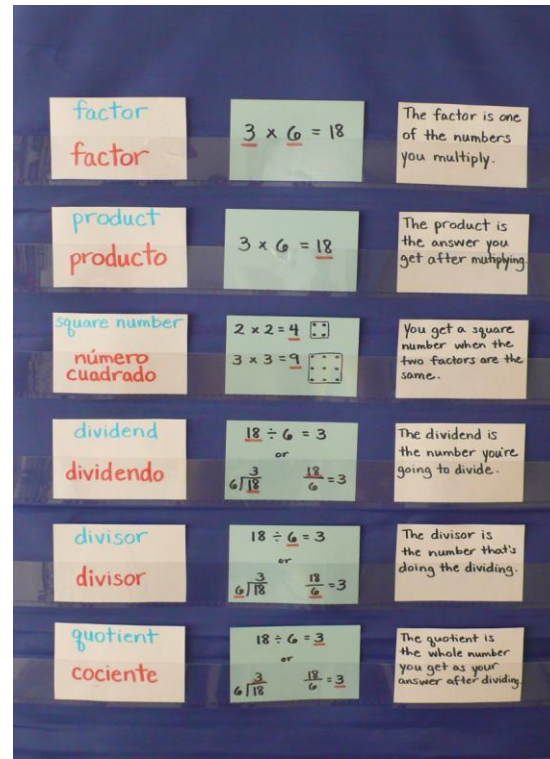 factor
factor
3 x 6 = 18
The factor is one
of the numbers
you multiply.
product
producto
3 x 6 = 18
The product is
the answer you
get after mutiplying
square number
número
cuadrado
2 x 2 = 4
3 x 3 = 9
You get a square
number when the
two factors are the
same.
dividend
dividendo
18 ÷ 6 = 3
or
3
6)18
18
6 = 3
The dividend is
the number you're
going to divide.
divisor
divisor
18 ÷ 6 = 3
or
3
6)18
18
6 = 3
The divisor is
the number that's
doing the dividing.
quotient
cociente
18 ÷ 6 = 3
or
3
6)18
18
6 = 3
The quotient is
the whole number
you get as your
answer after dividing.